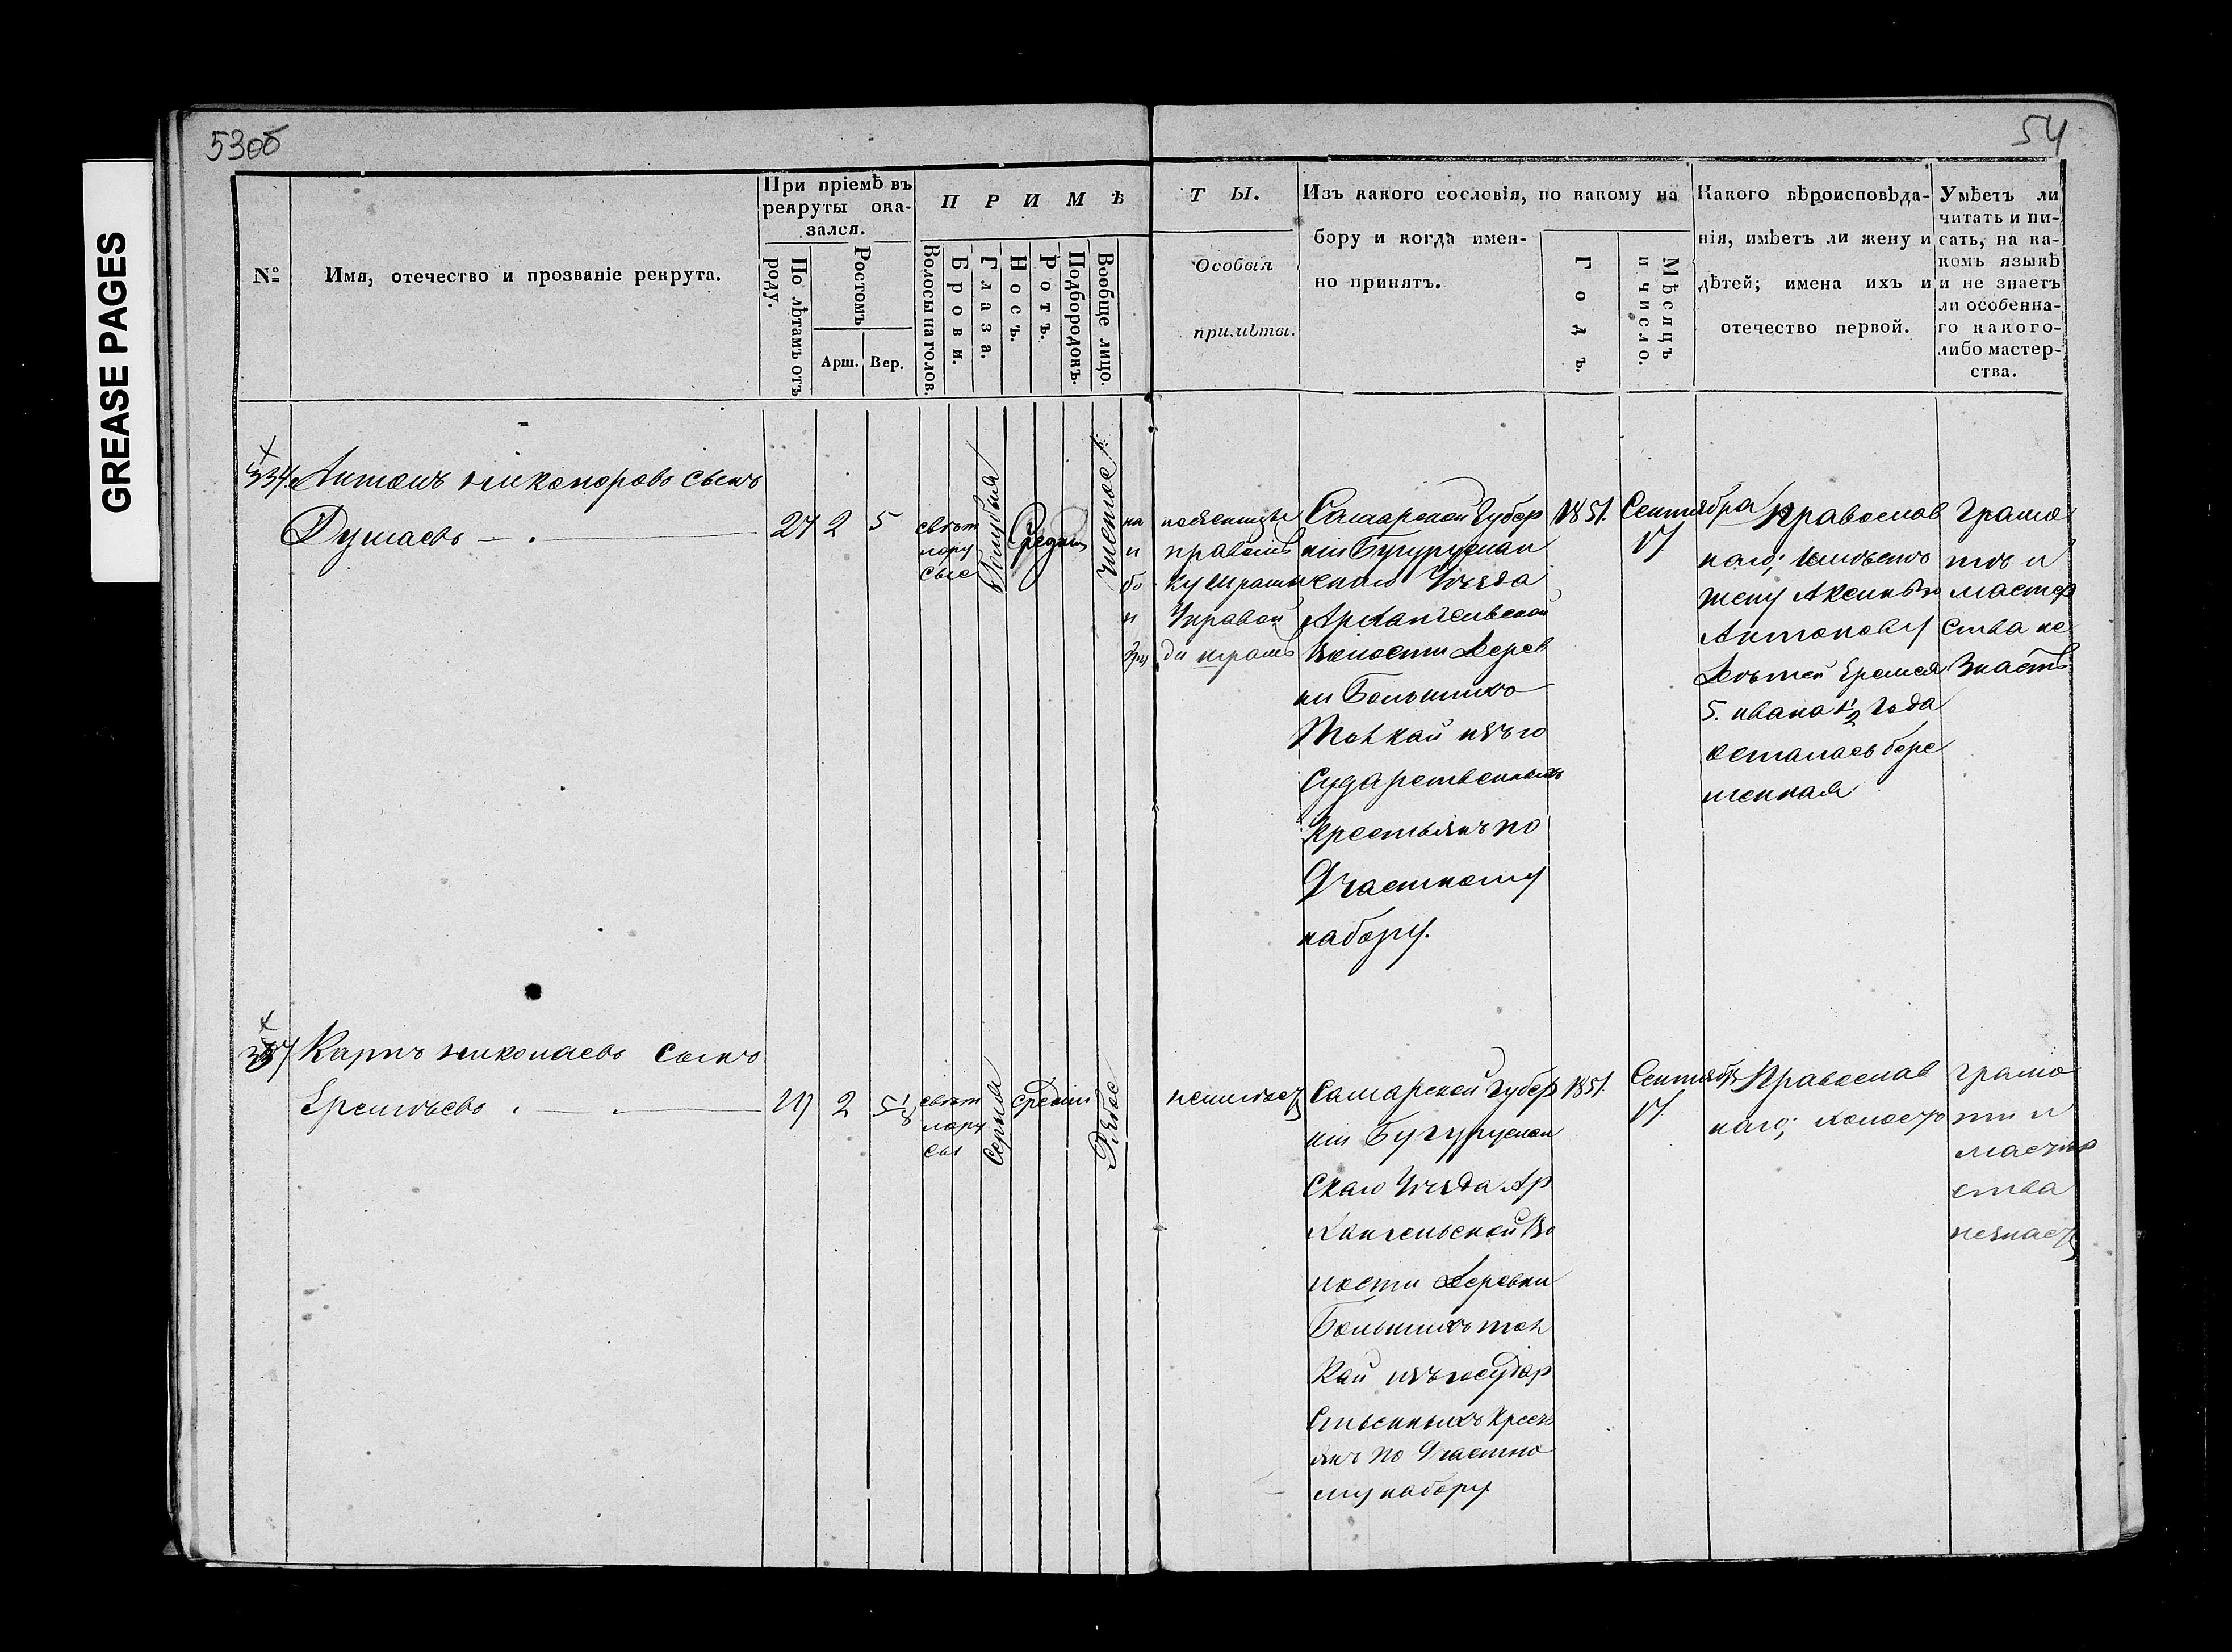 53об
54
GREASE PAGES
№
Имя, отечество и прозваніе рекрута.
При пріемѣ въ
рекруты ока-
зался.
По лѣтамъ отъ
роду.
Ростомъ
Арш.
Вер.
ПРИМѢ
Волосы на голов.
Брови.
Глаза.
Носъ.
Ротъ.
Подбородокъ.
Вообще лицо.
ТЫ.
Особыя
примѣты.
Изъ какого сословія, по какому на
бору и когда имен-
но принятъ.
Годъ.
Мѣсяцъ
и число.
Какого вѣроисповѣда-
нія, имѣетъ ли жену и
дѣтей; имена ихъ и
отечество первой.
Умѣетъ ли
читать и пи-
сать, на ка-
комъ языкѣ
и не знаетъ
ли особенна-
го какого-
либо мастер-
ства.
Антонъ Никоноровъ сынъ
Думаевъ
2
5
свѣт
лору
сые
Голубыя
Средніи
Чистое
на
и
бо
и
пояснице
правомъ
ку шрамы
правой
шрамъ
Самарской Губер
ніи Бугуруслан
скаго Уѣзда
Архангельской
Волости Дерев
ни Большихъ
Толкай изъ го
сударственныхъ
крестьянъ по
Участному
набору.
1851.
Сентября
17
Православ
наго; имѣетъ
жену Аксинью
Антонову
дѣтей Еремея
5. Ивана 1/2 года
осталась бере
менная
Грамо
тѣ и
мастер
ства не
знаетъ
Карпъ Николаевъ сынъ
Еремѣевъ
2
5 1/8
свѣт
лору
сыя
Серыя
Средніи
Рябое
неимѣетъ
Самарской Губер
ніи Бугуруслан
скаго Уѣзда Ар
хангельской Во
лости Деревни
Большихъ тол
кай изъ государ
ственныхъ крест
янъ по Участно
му набору
1851.
Сентябр
17.
Православ
наго; холостъ
грамо
ти и
мастер
ства
незнаетъ